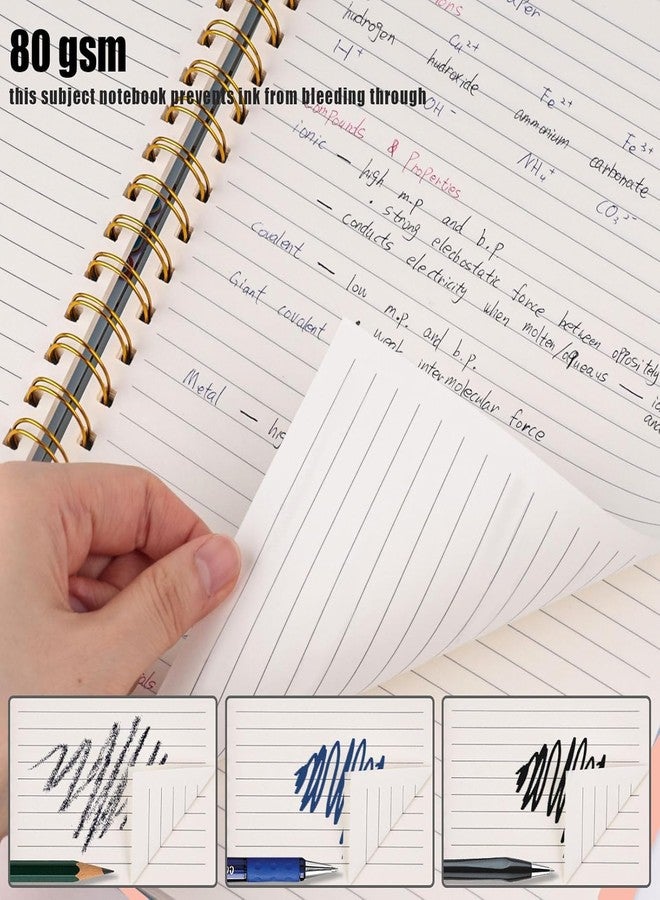 80 gsm
this subject notebook prevents ink from bleeding through
ions
hydrogen
Cu²⁺
H⁺
hydroxide
Fe²⁺
OH⁻
ammonium
Fe³⁺
NH₄⁺
carbonate
CO₃²⁻
Compounds & Properties
ionic — high m.p and b.p
• strong elecbostatic force between oppositely
— conducts electricity when molten/aqueous —
Covalent — low m.p. and b.p.
• weak intermolecular force
Giant covalent
Metal — hig
als